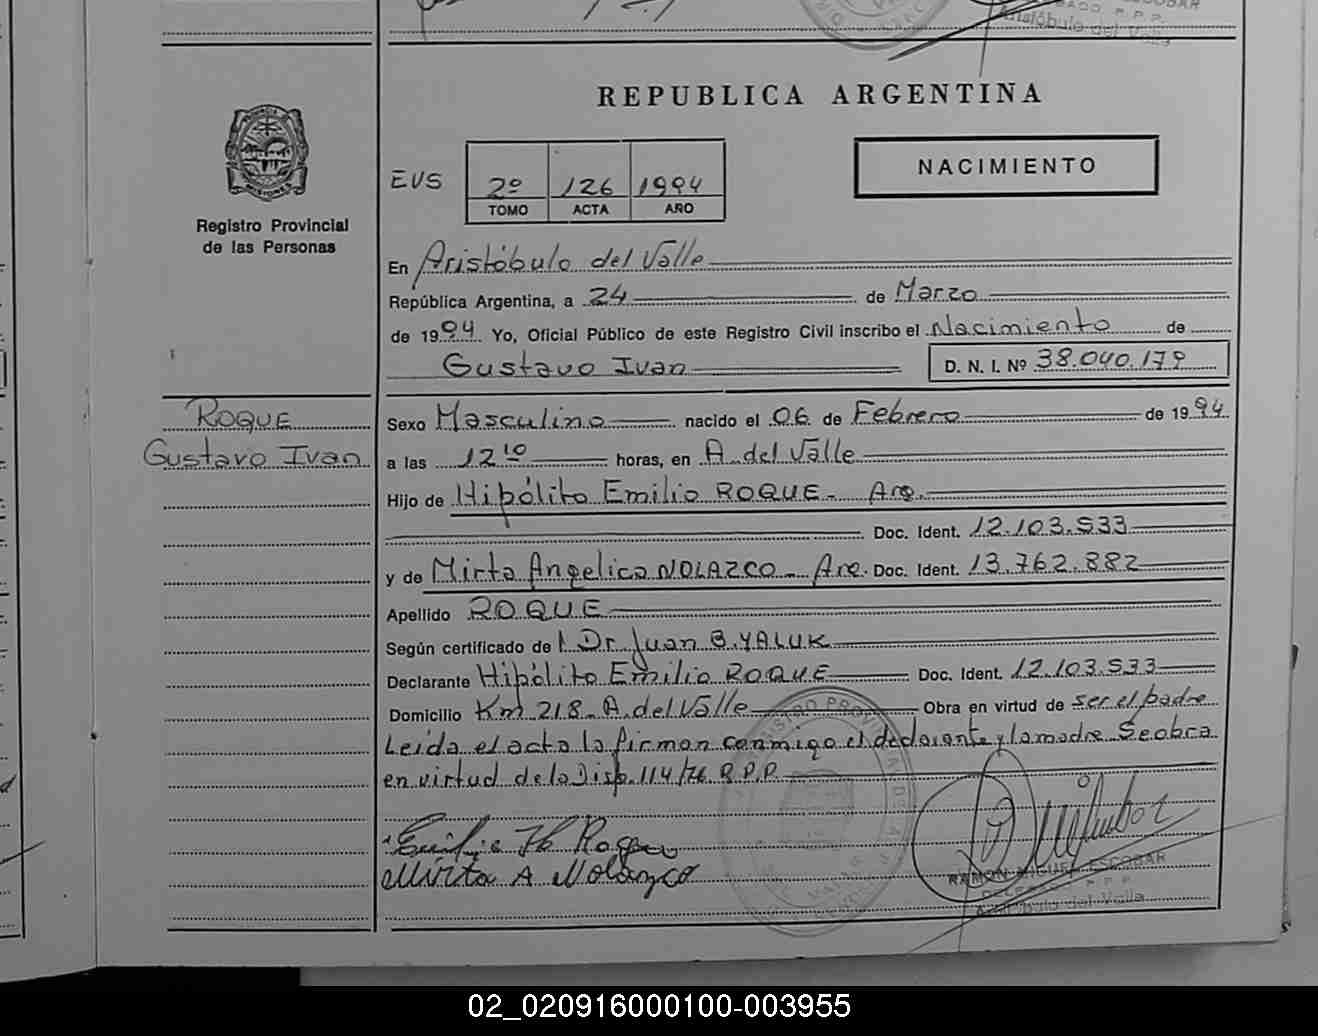 REPUBLICA ARGENTINA
EVS
2º 126 1994
TOMO ACTA AÑO
NACIMIENTO
Registro Provincial
de las Personas
En Aristóbulo del Valle
República Argentina, a 24 de Marzo
de 1994 Yo, Oficial Público de este Registro Civil inscribo el Nacimiento de
Gustavo Ivan D. N. I. Nº 38.040.179
ROQUE
Gustavo Ivan
Sexo Masculino nacido el 06 de Febrero de 1994
a las 12 10 horas, en A. del Valle
Hijo de Hipólito Emilio ROQUE - Arg.
Doc. Ident. 12.103.533
y de Mirta Angelica NOLAZCO - Arg. Doc. Ident. 13.762.882
Apellido ROQUE
Según certificado de l Dr. Juan B. YALUK
Declarante Hipólito Emilio ROQUE Doc. Ident. 12.103.533
Domicilio Km 218 - A. del Valle Obra en virtud de ser el padre
Leída el acta la firman conmigo el declarante y la madre. Se obra
en virtud de la Disp. 114/76 R.P.P.
Mirta A Nolazco
RAMON MIGUEL ESCOBAR
DELEGADO R.P.P.
Aristóbulo del Valle
02_020916000100-003955